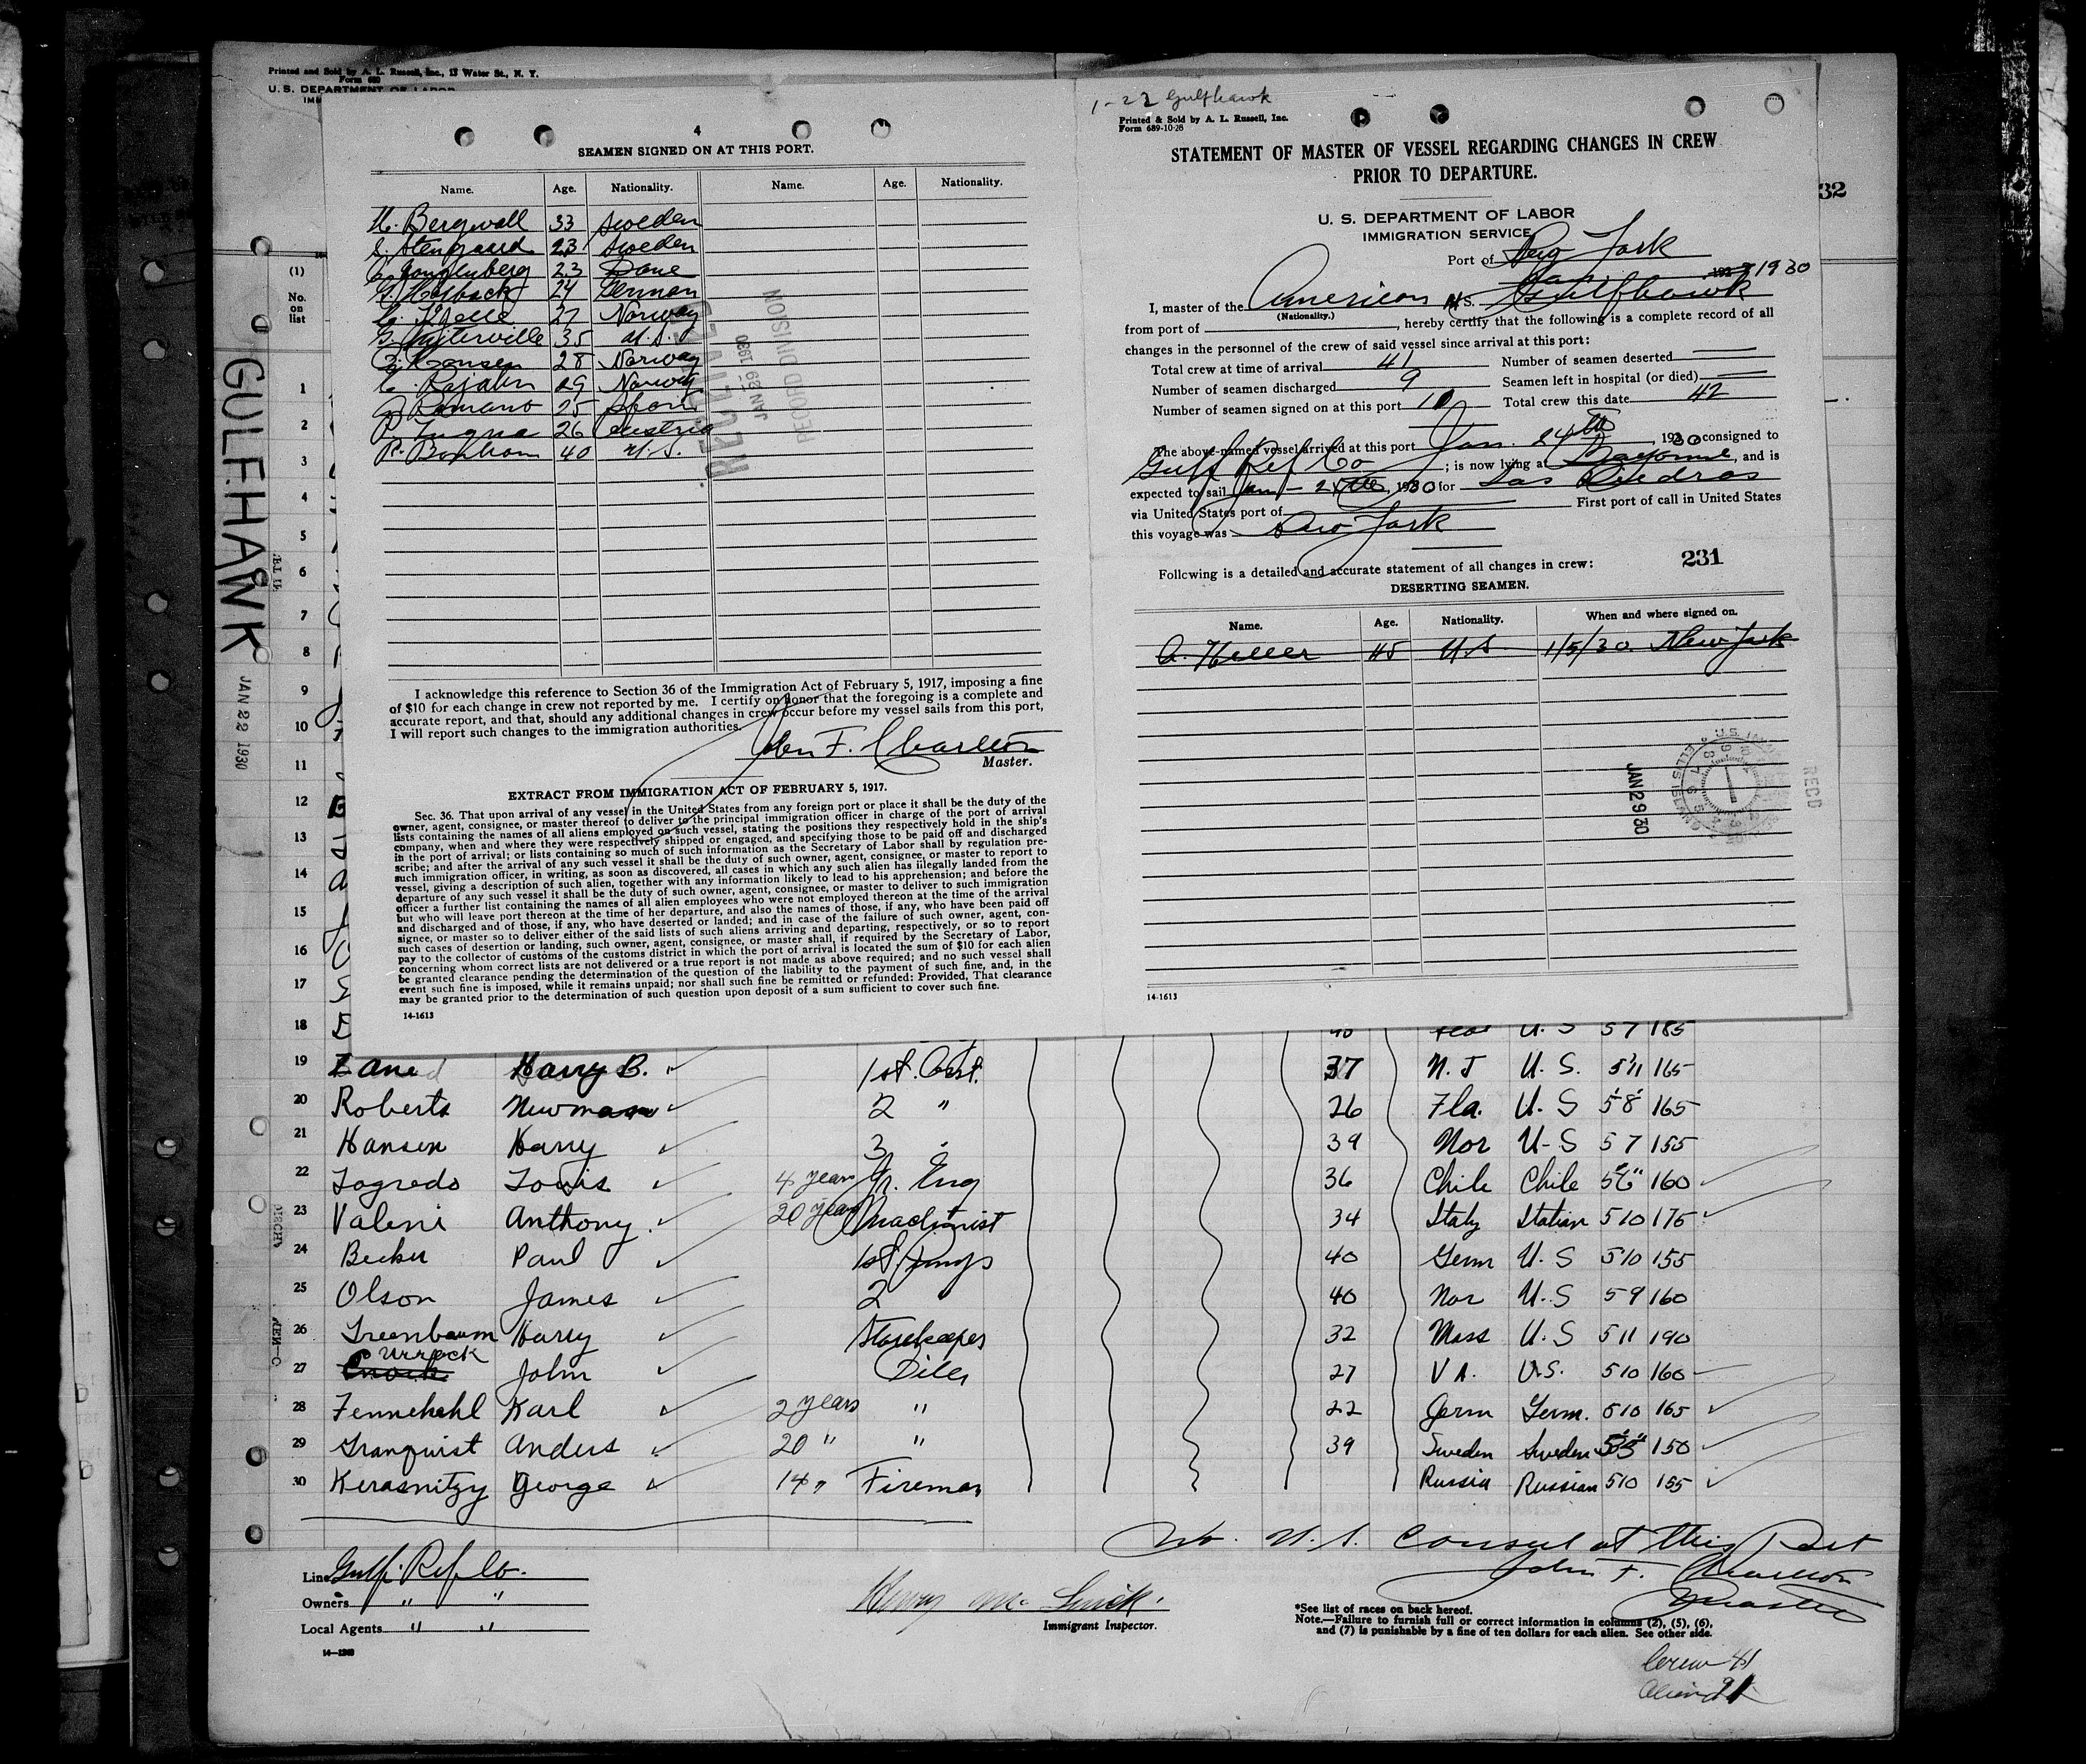 Printed and Sold by A. L. Russell, Inc., 13 Water St., N. Y.
Form 680
U. S. DEPARTMENT OF LABOR
GULFHAWK
JAN 22 1930
(1)
No. on list
1
2
3
4
5
6
7
8
9
10
11
12
13
14
15
16
17
18
4
SEAMEN SIGNED ON AT THIS PORT.
Name. Age. Nationality. Name. Age. Nationality.
Bergwall 33 Sweden
S. Stengaard 23 Sweden
23 Dane
24 German
27 Norway
35 U.S.
Hansen 28 Norway
29 Norway
Romano 25 Spain
26 Austria
R. Bonham 40 U.S.
RECEIVED
JAN 29 1930
RECORD DIVISION
I acknowledge this reference to Section 36 of the Immigration Act of February 5, 1917, imposing a fine
of $10 for each change in crew not reported by me. I certify on honor that the foregoing is a complete and
accurate report, and that, should any additional changes in crew occur before my vessel sails from this port,
I will report such changes to the immigration authorities.
John F. Charlton
Master.
EXTRACT FROM IMMIGRATION ACT OF FEBRUARY 5, 1917.
Sec. 36. That upon arrival of any vessel in the United States from any foreign port or place it shall be the duty of the
owner, agent, consignee, or master thereof to deliver to the principal immigration officer in charge of the port of arrival
lists containing the names of all aliens employed on such vessel, stating the positions they respectively hold in the ship's
company, when and where they were respectively shipped or engaged, and specifying those to be paid off and discharged
in the port of arrival; or lists containing so much of such information as the Secretary of Labor shall by regulation pre-
scribe; and after the arrival of any such vessel it shall be the duty of such owner, agent, consignee, or master to report to
such immigration officer, in writing, as soon as discovered, all cases in which any such alien has illegally landed from the
vessel, giving a description of such alien, together with any information likely to lead to his apprehension; and before the
departure of any such vessel it shall be the duty of such owner, agent, consignee, or master to deliver to such immigration
officer a further list containing the names of all alien employees who were not employed thereon at the time of the arrival
but who will leave port thereon at the time of her departure, and also the names of those, if any, who have been paid off
and discharged and of those, if any, who have deserted or landed; and in case of the failure of such owner, agent, con-
signee, or master so to deliver either of the said lists of such aliens arriving and departing, respectively, or so to report
such cases of desertion or landing, such owner, agent, consignee, or master shall, if required by the Secretary of Labor,
pay to the collector of customs of the customs district in which the port of arrival is located the sum of $10 for each alien
concerning whom correct lists are not delivered or a true report is not made as above required; and no such vessel shall
be granted clearance pending the determination of the question of the liability to the payment of such fine, and, in the
event such fine is imposed, while it remains unpaid; nor shall such fine be remitted or refunded: Provided, That clearance
may be granted prior to the determination of such question upon deposit of a sum sufficient to cover such fine.
14-1613
1-22 Gulfhawk
Printed & Sold by A. L. Russell, Inc.
Form 689-10-28
STATEMENT OF MASTER OF VESSEL REGARDING CHANGES IN CREW
PRIOR TO DEPARTURE.
U. S. DEPARTMENT OF LABOR
IMMIGRATION SERVICE
Port of New York
Jan 1930
I, master of the American S. Gulfhawk
(Nationality.)
from port of , hereby certify that the following is a complete record of all
changes in the personnel of the crew of said vessel since arrival at this port:
Total crew at time of arrival 41 Number of seamen deserted
Number of seamen discharged 9 Seamen left in hospital (or died)
Number of seamen signed on at this port 10 Total crew this date 42
The above-named vessel arrived at this port Jan. 24th, 1930 consigned to
Gulf Ref Co ; is now lying at Bayonne, and is
expected to sail Jan , 1930 for Las Piedras
via United States port of First port of call in United States
this voyage was New York
Following is a detailed and accurate statement of all changes in crew: 231
DESERTING SEAMEN.
Name. Age. Nationality. When and where signed on.
A. Heller 45 U.S. 1/5/30. New York
REC'D
JAN 29 30
14-1613
32
40 U. S 5 7 185
19 Zane Harry B. 1st. Asst. 37 N. J U. S. 5'11 165
20 Roberts Newman 2 " 26 Fla. U. S 5'8" 165
21 Hansen Harry 3 " 39 Nor U-S 5 7 155
22 Logredo Louis 4 years Jr. Eng 36 Chile Chile 5 6" 160
23 Valeni Anthony 20 years Machinist 34 Italy Italian 5 10 175
24 Becker Paul 1st Pumps 40 Germ U. S 5'10 155
25 Olson James 2 40 Nor U. S 5 9 160
26 Greenbaum Harry Storekeeper 32 Mass U. S 5 11 190
27 Currock John Oiler 27 VA. U.S. 5 10 160
28 Fennekohl Karl 2 years " 22 Germ Germ. 5 10 165
29 Granquist Anders 20 " " 39 Sweden Sweden 150
30 Kerasnitzy George 14 " Fireman Russia Russian 5 10 155
No. U. S. Consul at this Port
John F. Charlton
Master
Line Gulf. Ref. Co.
Owners " "
Local Agents " "
14-1240
Henry Mc
Immigrant Inspector.
*See list of races on back hereof.
Note.—Failure to furnish full or correct information in columns (2), (5), (6),
and (7) is punishable by a fine of ten dollars for each alien. See other side.
Crew 41
Aliens